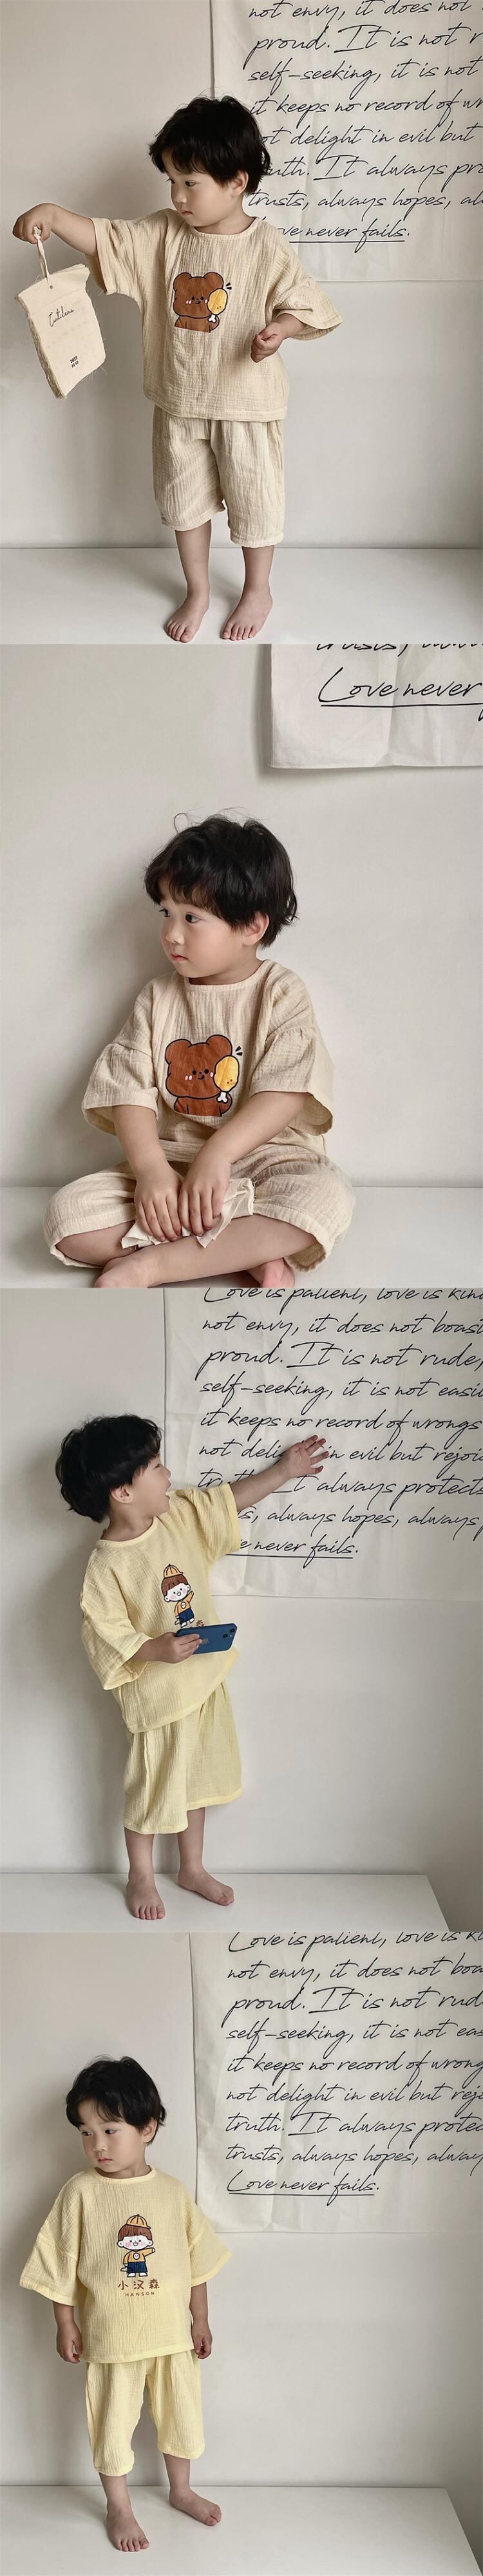 not envy, it does not
proud. It is not r
self-seeking, it is not
it keeps no record of wr
not delight in evil but
uth. It always pro
trusts, always hopes, al
ove never fails.
2022
Love never
Love is patient, love is kin
not envy, it does not boast
proud. It is not rude,
self-seeking, it is not easil
it keeps no record of wrongs
not deli in evil but rejoi
tru It always protects
s, always hopes, always p
e never fails.
Love is patient, love is ki
not envy, it does not boa
proud. It is not rud
self-seeking, it is not eas
it keeps no record of wrong
not delight in evil but rejo
truth. It always protec
trusts, always hopes, alway
Love never fails.
小汉森
HANSON